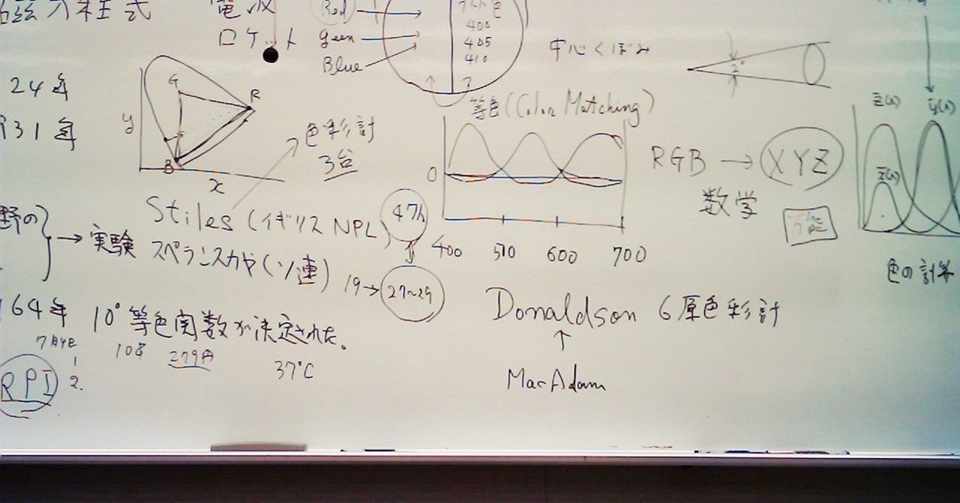 方程式
電波
ロケット
Red
Geen
Blue
400
405
410
?
中心くぼみ
2°
24年
931年
y
G
R
B
x
色彩計
3台
等色(Color Matching)
0
400 510 600 700
RGB → XYZ
数学
z̄(λ)
ȳ(λ)
色の計算
野の
→ 実験
Stiles (イギリス NPL)
47人
スペランスカヤ(ソ連)
19→ 27~29
64年 10°等色関数が決定された。
7月4日
10名
279円
37°C
1
2.
RPI
Donaldson 6原色彩計
↑
MacAdam